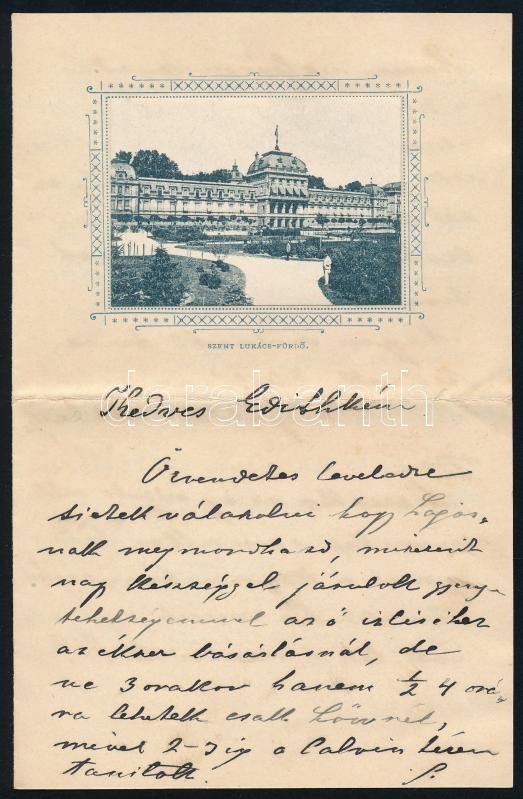 SZENT LUKÁCS-FÜRDŐ.
darabanth.com
Kedves Edithkém
Örvendetes leveledre
sietek válaszolni hogy Lajos-
nak megmondhasd, miszerint
nagy készséggel járulok gyenge
tehetségemmel az ő izléséhez
az ékszer vásárlásnál, de
ne 3 orakor hanem ½ 4 orá-
ra lehetek csak
mivel 2-3 ig a Calvin téren
tanitok.